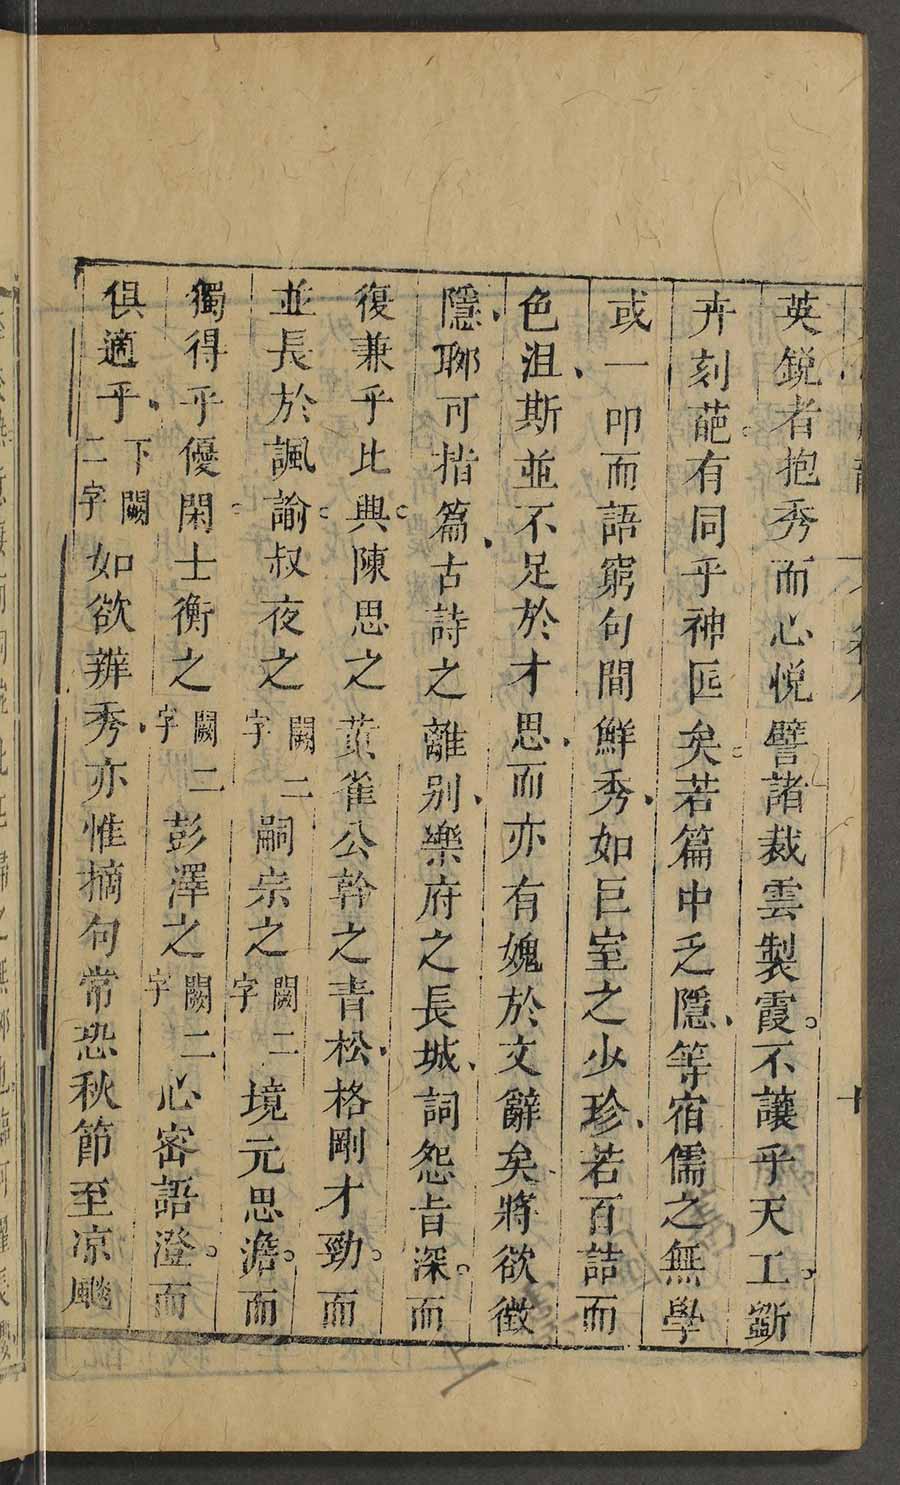 英銳者抱秀而心悅譬諸裁雲製霞。不讓乎天工。斵
卉刻葩。有同乎神匠矣。若篇中乏隱、等宿儒之無學
或一叩而語窮句間鮮秀、如巨室之少珍、若百詰而
色沮、斯並不足於才思、而亦有媿於文辭矣將欲徵
隱、聊可指篇、古詩之離别、樂府之長城、詞怨旨深。而
復兼乎比興。陳思之黃雀公幹之青松、格剛才勁。而
並長於諷諭。叔夜之闕二字嗣宗之闕二字境元思澹。而
獨得乎優閑。士衡之闕二字彭澤之闕二字心密語澄。而
俱適乎、下闕二字如欲辨秀、亦惟摘句常恐秋節至凉飈
十